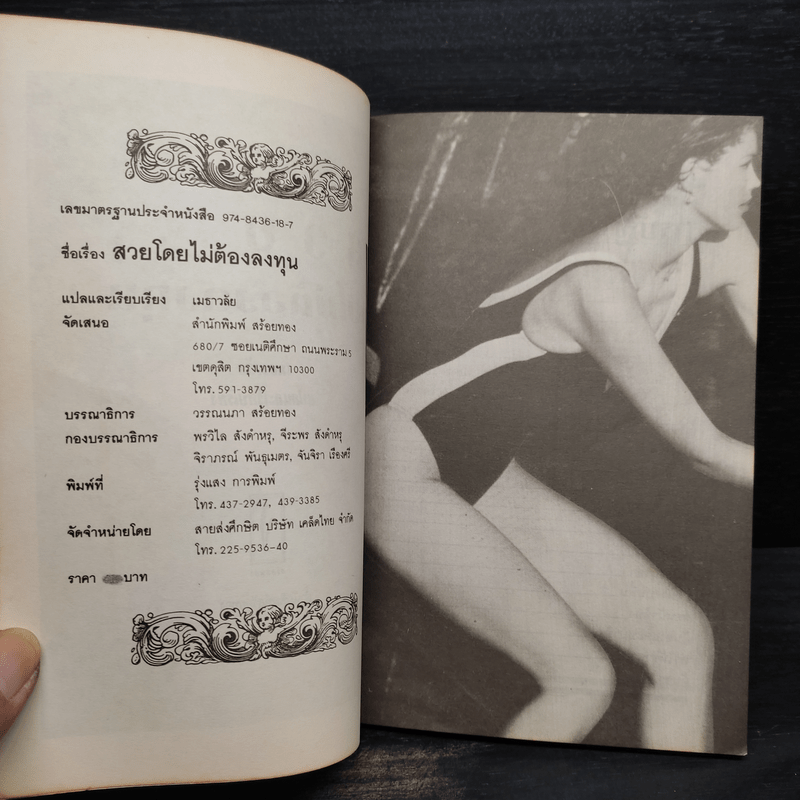 เลขมาตรฐานประจำหนังสือ 974-8436-18-7
ชื่อเรื่อง สวยโดยไม่ต้องลงทุน
แปลและเรียบเรียง เมธาวลัย
จัดเสนอ สำนักพิมพ์ สร้อยทอง
680/7 ซอยเนติศึกษา ถนนพระราม 5
เขตดุสิต กรุงเทพฯ 10300
โทร. 591-3879
บรรณาธิการ วรรณนภา สร้อยทอง
กองบรรณาธิการ พรวิไล สังดำหรุ, จีระพร สังดำหรุ
จิราภรณ์ พันธุเมตร, จันจิรา เรืองศรี
พิมพ์ที่ รุ่งแสง การพิมพ์
โทร. 437-2947, 439-3385
จัดจำหน่ายโดย สายส่งศึกษิต บริษัท เคล็ดไทย จำกัด
โทร. 225-9536-40
ราคา บาท